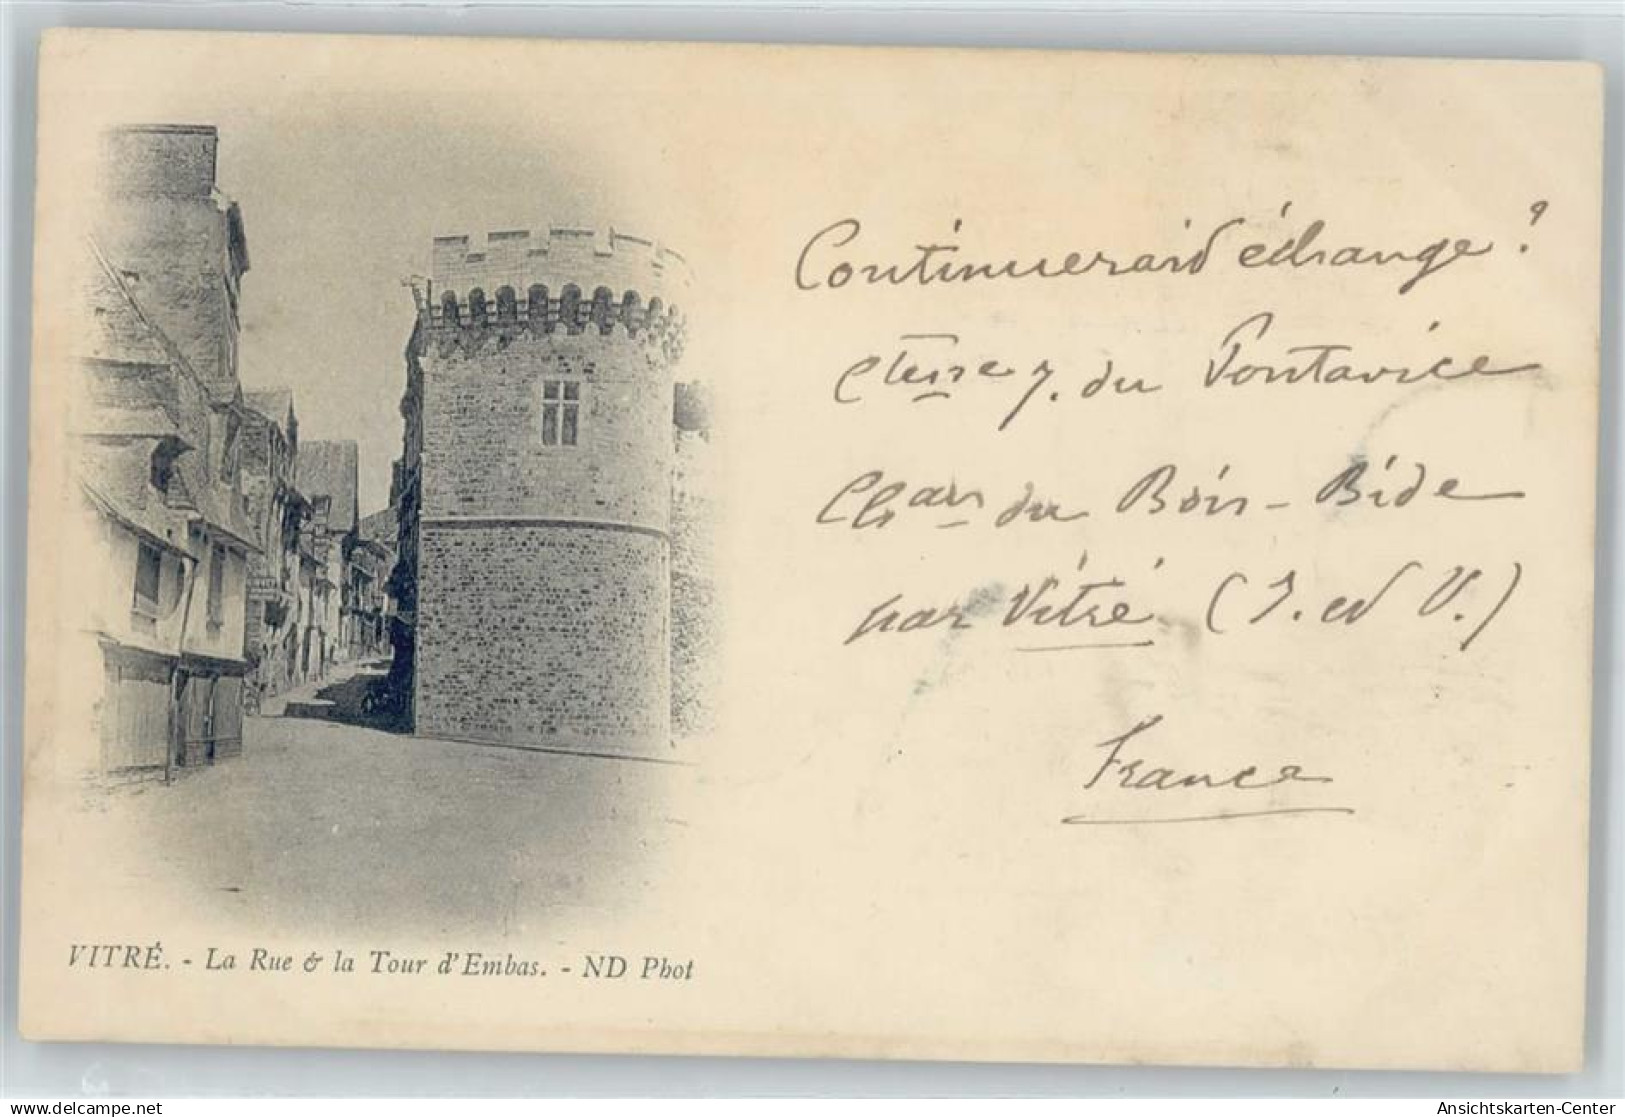 Continuerait échange ?
Ctesse J. du Pontavice
Chau du Bois-Bide
par Vitré (I. et V.)
France
VITRÉ. - La Rue & la Tour d'Embas. - ND Phot
delcampe.net
Ansichtskarten-Center